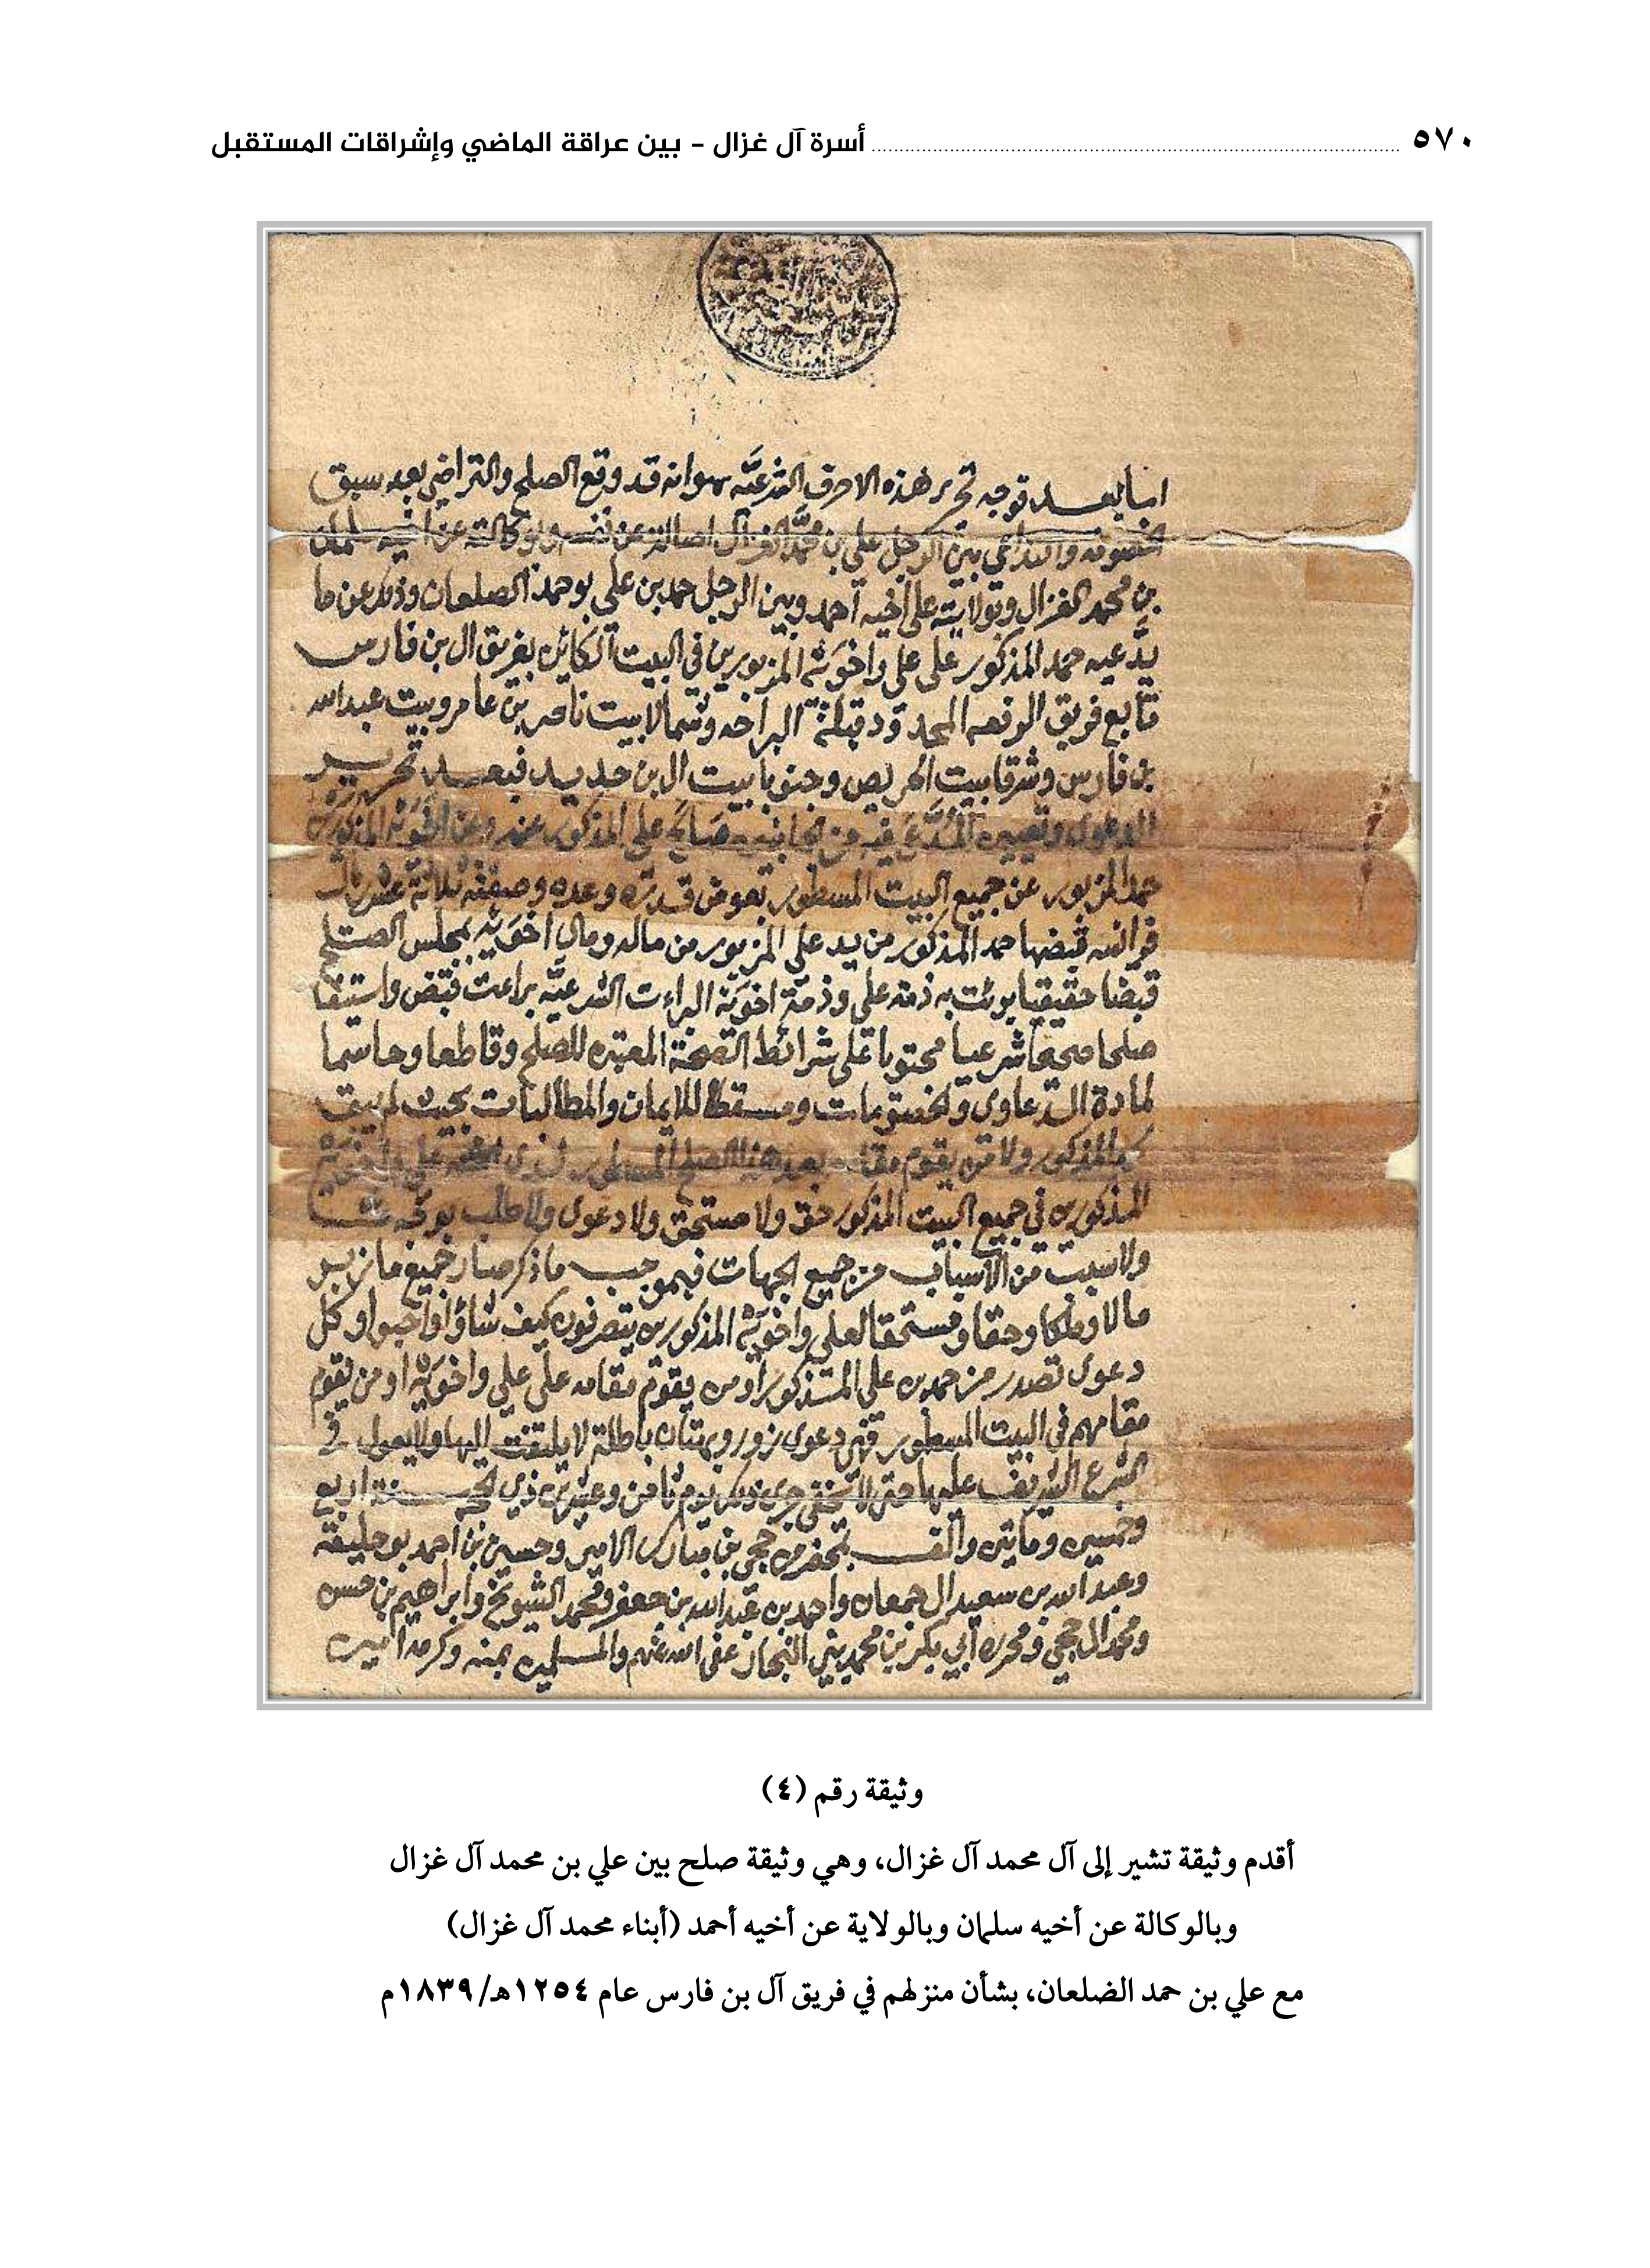 ٥٧٠ أسرة آل غزال - بين عراقة الماضي وإشراقات المستقبل
اما بعد فوجه تحرير هذه الاحرف الشرعيه هو انه قد وقع الصلح والتراضي بعد سبق
الخصومه والتداعي بين الرجل علي بن محمد الغزال اصالة عن نفسه ولوكالته عن اخيه سلمان
بن محمد الغزال وبولايته على اخيه احمد وبين الرجل حمد بن علي بو حمد الضلعان وذلك عن ما
يدعيه حمد المذكور على علي واخوته المزبورين في البيت الكاين بفريق ال بن فارس
تابع فريق الرفعه المحدود قبلة البراحه وشمالا بيت ناصر بن عامر وبيت عبدالله
بن فارس وشرقا بيت الحريص وجنوبا بيت ال بن حديد فبعد تحرير
الدعوى وتعيين المدعى فيه من جانبيه صالح علي المذكور عنه وعن اخوته المذكورين
حمد المزبور عن جميع البيت المسطور بعوض قدره وعده وصفته ثلاثة عشر ريال
فرانسه قبضها حمد المذكور من يد علي المزبور من ماله ومال اخوته بمجلس الصلح
قبضا حقيقيا بوئت به ذمة علي وذمة اخوته البراءت الشرعيه براءت قبض واستيفا
صلحا صحيحا شرعيا محتويا على شرائط الصحة المعتبره للصلح وقاطعا وحاسما
لمادة الدعاوى والخصومات ومسقطا للايمان والمطالبات بحيث لم يبق
المذكور ولا من يقوم مقامه بعد هذا الصلح المسطور لدى علي واخوته
المذكورين في جميع البيت المذكور حق ولا مستحق ولا دعوى ولا طلب بوجه
ولا سبب من الاسباب من جميع الجهات فبموجب ما ذكر صار جميع ما زبر
مالا وملكا وحقا ومستحقا لعلي واخوته المذكورين يتصرفون كيف شاؤا واحبوا وكل
دعوى تصدر من حمد بن علي المذكور او من يقوم مقامه على علي واخوته او من يقوم
مقامهم في البيت المسطور فهي دعوى زور وبهتان باطلة لا يلتفت اليها ولا يعول في
الشرع الشريف عليها حتى لا يخفى جرى ذلك يوم ثامن وعشرين ذي الحجه سنة اربع
وخمسين وماتين والف بمحضر من حجي بن مبارك الامير وحسين بن احمد بو حليقة
وعبد الله بن سعيد ال جمعان واحمد بن عبد الله بن جعفر ومحمد الشويخ وابراهيم بن حسن
ومحمد ال حجي ومحرره ابي بكر بن محمد بني النجار عفى الله عنهم والمسلمين بمنه وكرمه امين
وثيقة رقم (٤)
أقدم وثيقة تشير إلى آل محمد آل غزال، وهي وثيقة صلح بين علي بن محمد آل غزال
وبالوكالة عن أخيه سلمان وبالولاية عن أخيه أحمد (أبناء محمد آل غزال)
مع علي بن حمد الضلعان، بشأن منزلهم في فريق آل بن فارس عام ١٢٥٤هـ/١٨٣٩م